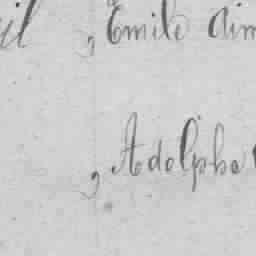 il , Emile Aim
, Adolphe